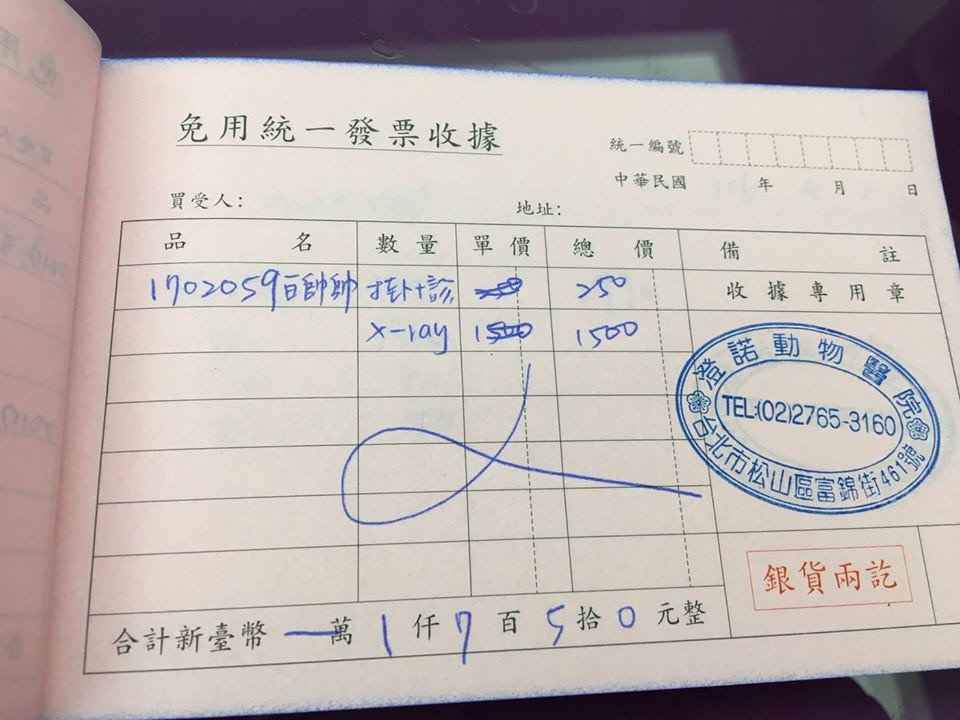 免用統一發票收據
統一編號
中華民國 年 月 日
買受人: 地址:
品名 數量 單價 總價 備註
1702059百帥帥 掛+診 250 250 收據專用章
x-ray 1500 1500
澄諾動物醫院
TEL:(02)2765-3160
台北市松山區富錦街461號
銀貨兩訖
合計新臺幣 一萬 1 仟 7 百 5 拾 0 元整